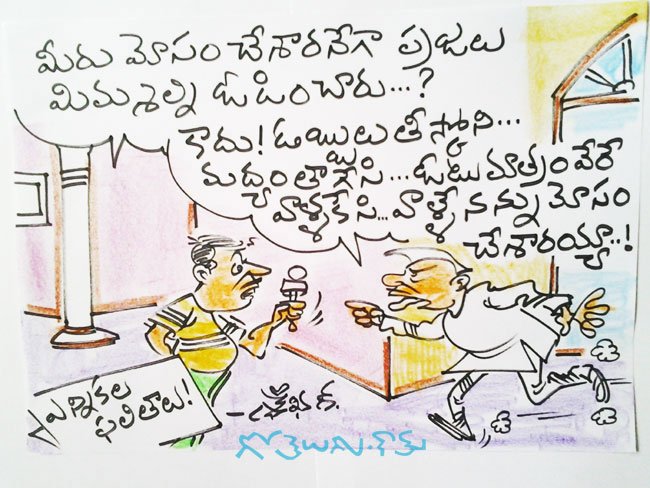 మీరు మోసం చేశారనేగా ప్రజలు
మిమ్మల్ని ఓడించారు...?
కాదు! డబ్బులు తీస్కొని...
మద్యం తాగేసి... ఓటు మాత్రం వేరే
వాళ్ళకేసి... వాళ్ళే నన్ను మోసం
చేశారయ్యా..!
ఎన్నికల
ఫలితాలు!
- శేఖర్.
గోతెలుగు.కామ్